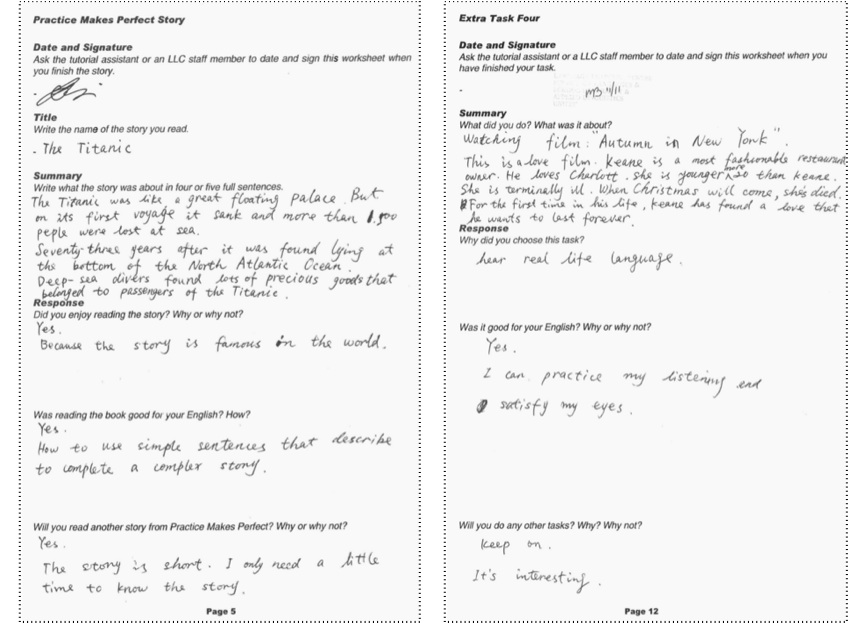 Practice Makes Perfect Story
Date and Signature
Ask the tutorial assistant or an LLC staff member to date and sign this worksheet when
you finish the story.
Title
Write the name of the story you read.
. The Titanic
Summary
Write what the story was about in four or five full sentences.
The Titanic was like a great floating palace. But
on its first voyage it sank and more than 1.500
peple were lost at sea.
Seventy-three years after it was found lying at
the bottom of the North Atlantic Ocean.
Deep-sea divers found lots of precious goods that
belonged to passengers of the Titanic.
Response
Did you enjoy reading the story? Why or why not?
Yes.
Because the story is famous in the world.
Was reading the book good for your English? How?
Yes.
How to use simple sentences that describe
to complete a complex story.
Will you read another story from Practice Makes Perfect? Why or why not?
Yes.
The story is short. I only need a little
time to know the story.
Page 5
Extra Task Four
Date and Signature
Ask the tutorial assistant or a LLC staff member to date and sign this worksheet when you
have finished your task.
MB 11/11
Summary
What did you do? What was it about?
Watching film: "Autumn in New York".
This is a love film. Keane is a most fashionable restaurant
owner. He loves Cherlott. she is younger more 20 than keane.
She is terminally ill. When Christmas will come, she's died.
For the first time in his life, keane has found a love that
he wants to last forever.
Response
Why did you choose this task?
hear real life language.
Was it good for your English? Why or why not?
Yes.
I can practice my listening and
satisfy my eyes.
Will you do any other tasks? Why? Why not?
keep on.
It's interesting.
Page 12